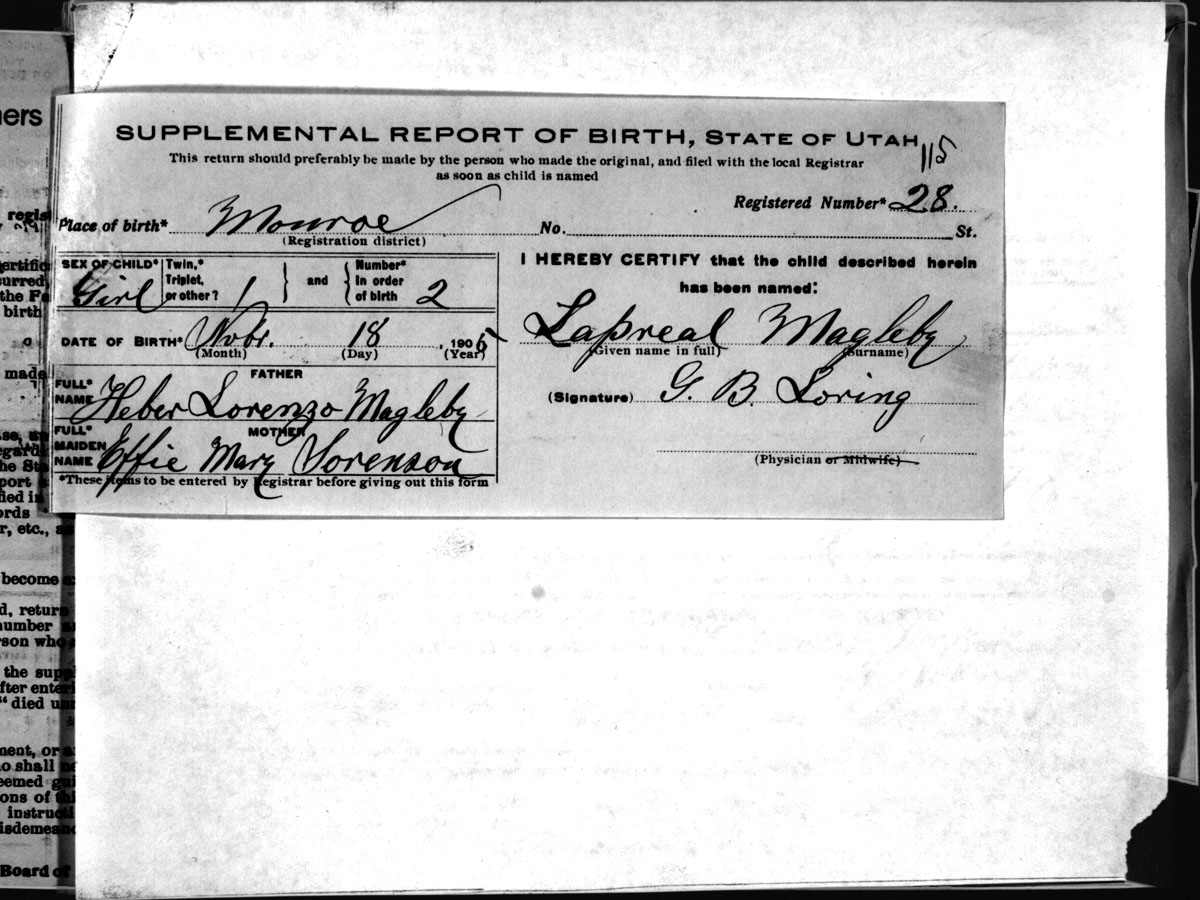 SUPPLEMENTAL REPORT OF BIRTH, STATE OF UTAH
115
This return should preferably be made by the person who made the original, and filed with the local Registrar
as soon as child is named
Registered Number* 28.
Place of birth* Monroe No. St.
(Registration district)
SEX OF CHILD* Girl
Twin,* Triplet, or other? 1
and
Number* in order of birth 2
DATE OF BIRTH* Novbr. 18, 190
(Month) (Day) (Year)
FATHER
FULL* NAME Heber Lorenzo Magleby
MOTHER
FULL* MAIDEN NAME Effie Mary Sorenson
*These items to be entered by Registrar before giving out this form
I HEREBY CERTIFY that the child described herein
has been named:
Lapreal Magleby
(Given name in full) (Surname)
(Signature) G. B. Loring
(Physician or Midwife)
ners
regis
ertific
curred,
the Fa
birth
made
se, an
egard
he Sta
port
fied in
ords
r, etc., a
become
d, return
number
son who
the supp
fter enteri
"died un
ment, or a
o shall
eemed gui
ons of thi
instructi
isdemeano
Board of